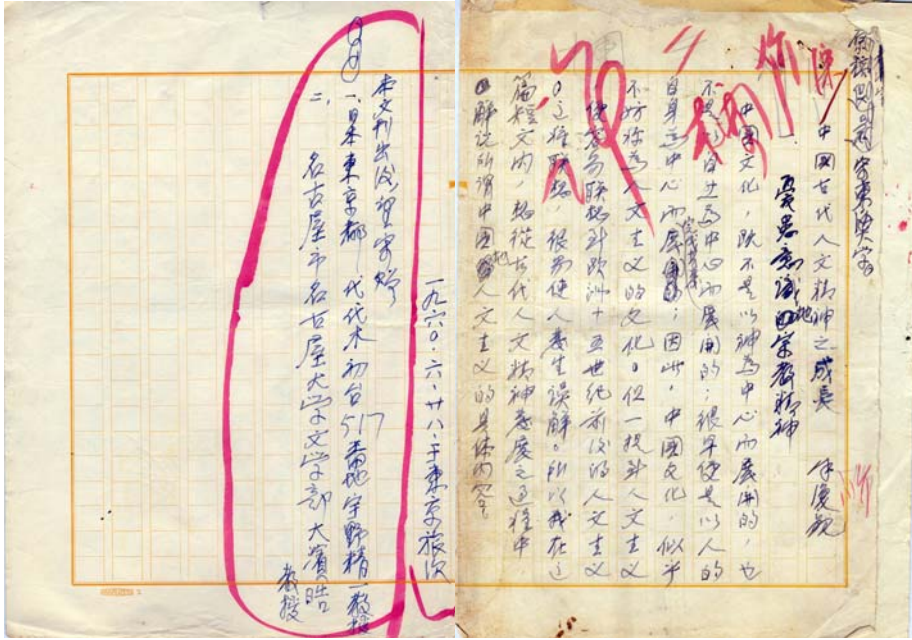 中國古代人文精神之成長
徐復觀
一、憂患意識的宗教精神
中國文化，既不是以神為中心而展開的，也
不是以自然為中心而展開的；很早便是以人的
自身為中心而展開的；因此，中國文化，似乎
不妨称為人文主义的文化。但一提到人文主义
便容易联想到欧洲十五世紀前後的人文主义
。这種联想，很易使人養生誤解。所以我在这
篇短文内，想從古代人文精神發展之过程中，
解说所謂中國人文主义的具体内容。
一九六〇·六·廿八·于東京旅次
本文刊出後，望寄贈
一、日本東京都 代代木初台517番地宇野精一教授
二、名古屋市名古屋大学文学部大濱晧
教授